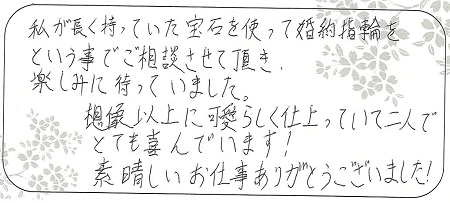 私が長く持っていた宝石を使って婚約指輪を
という事でご相談させて頂き、
楽しみに待っていました。
想像以上に可愛らしく仕上っていて二人で
とても喜んでいます!
素晴しいお仕事ありがとうございました!